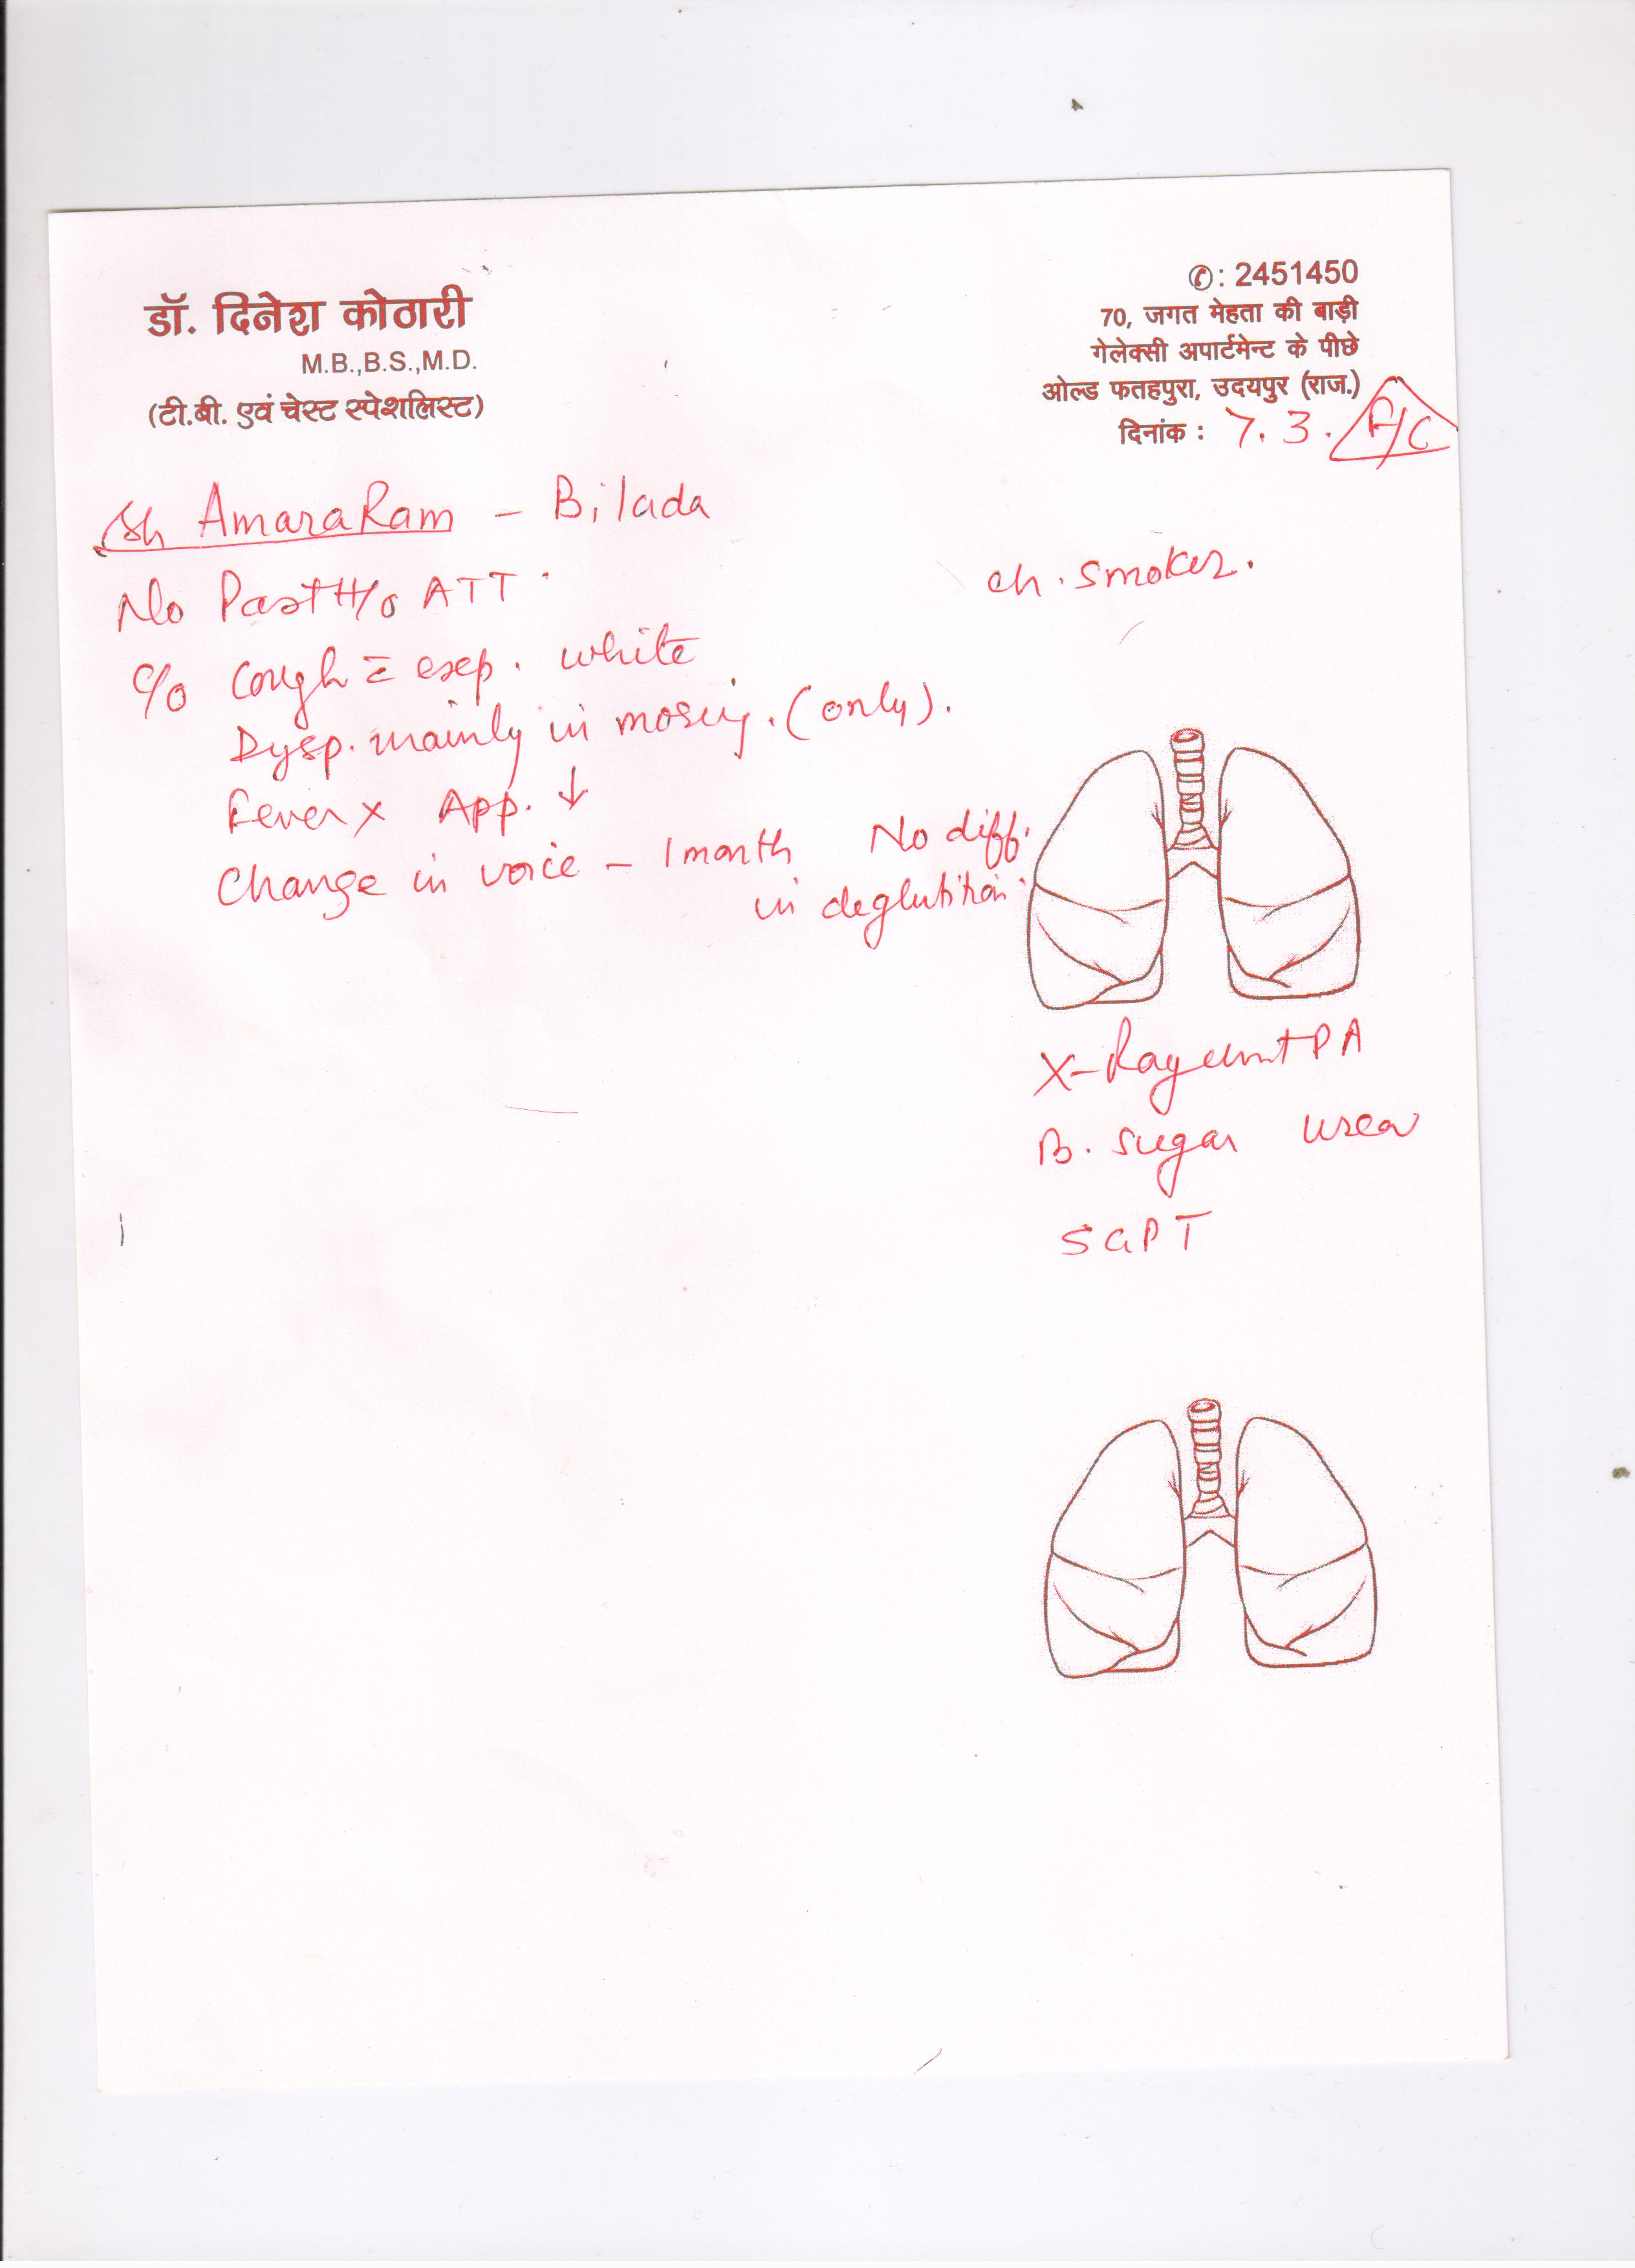 डॉ. दिनेश कोठारी
M.B.,B.S.,M.D.
(टी.बी. एवं चेस्ट स्पेशलिस्ट)
✆: 2451450
70, जगत मेहता की बाड़ी
गेलेक्सी अपार्टमेन्ट के पीछे
ओल्ड फतहपुरा, उदयपुर (राज.)
दिनांक : 7.3.
Sh AmaraRam - Bilada
No Past H/o ATT
ch. smoker.
C/o Cough c̄ exp. white
Dysp. mainly in morng. (only).
Fever x App. ↓
Change in voice - 1 month No diff.
in deglutition
X-Ray chest PA
B. sugar urea
SGPT